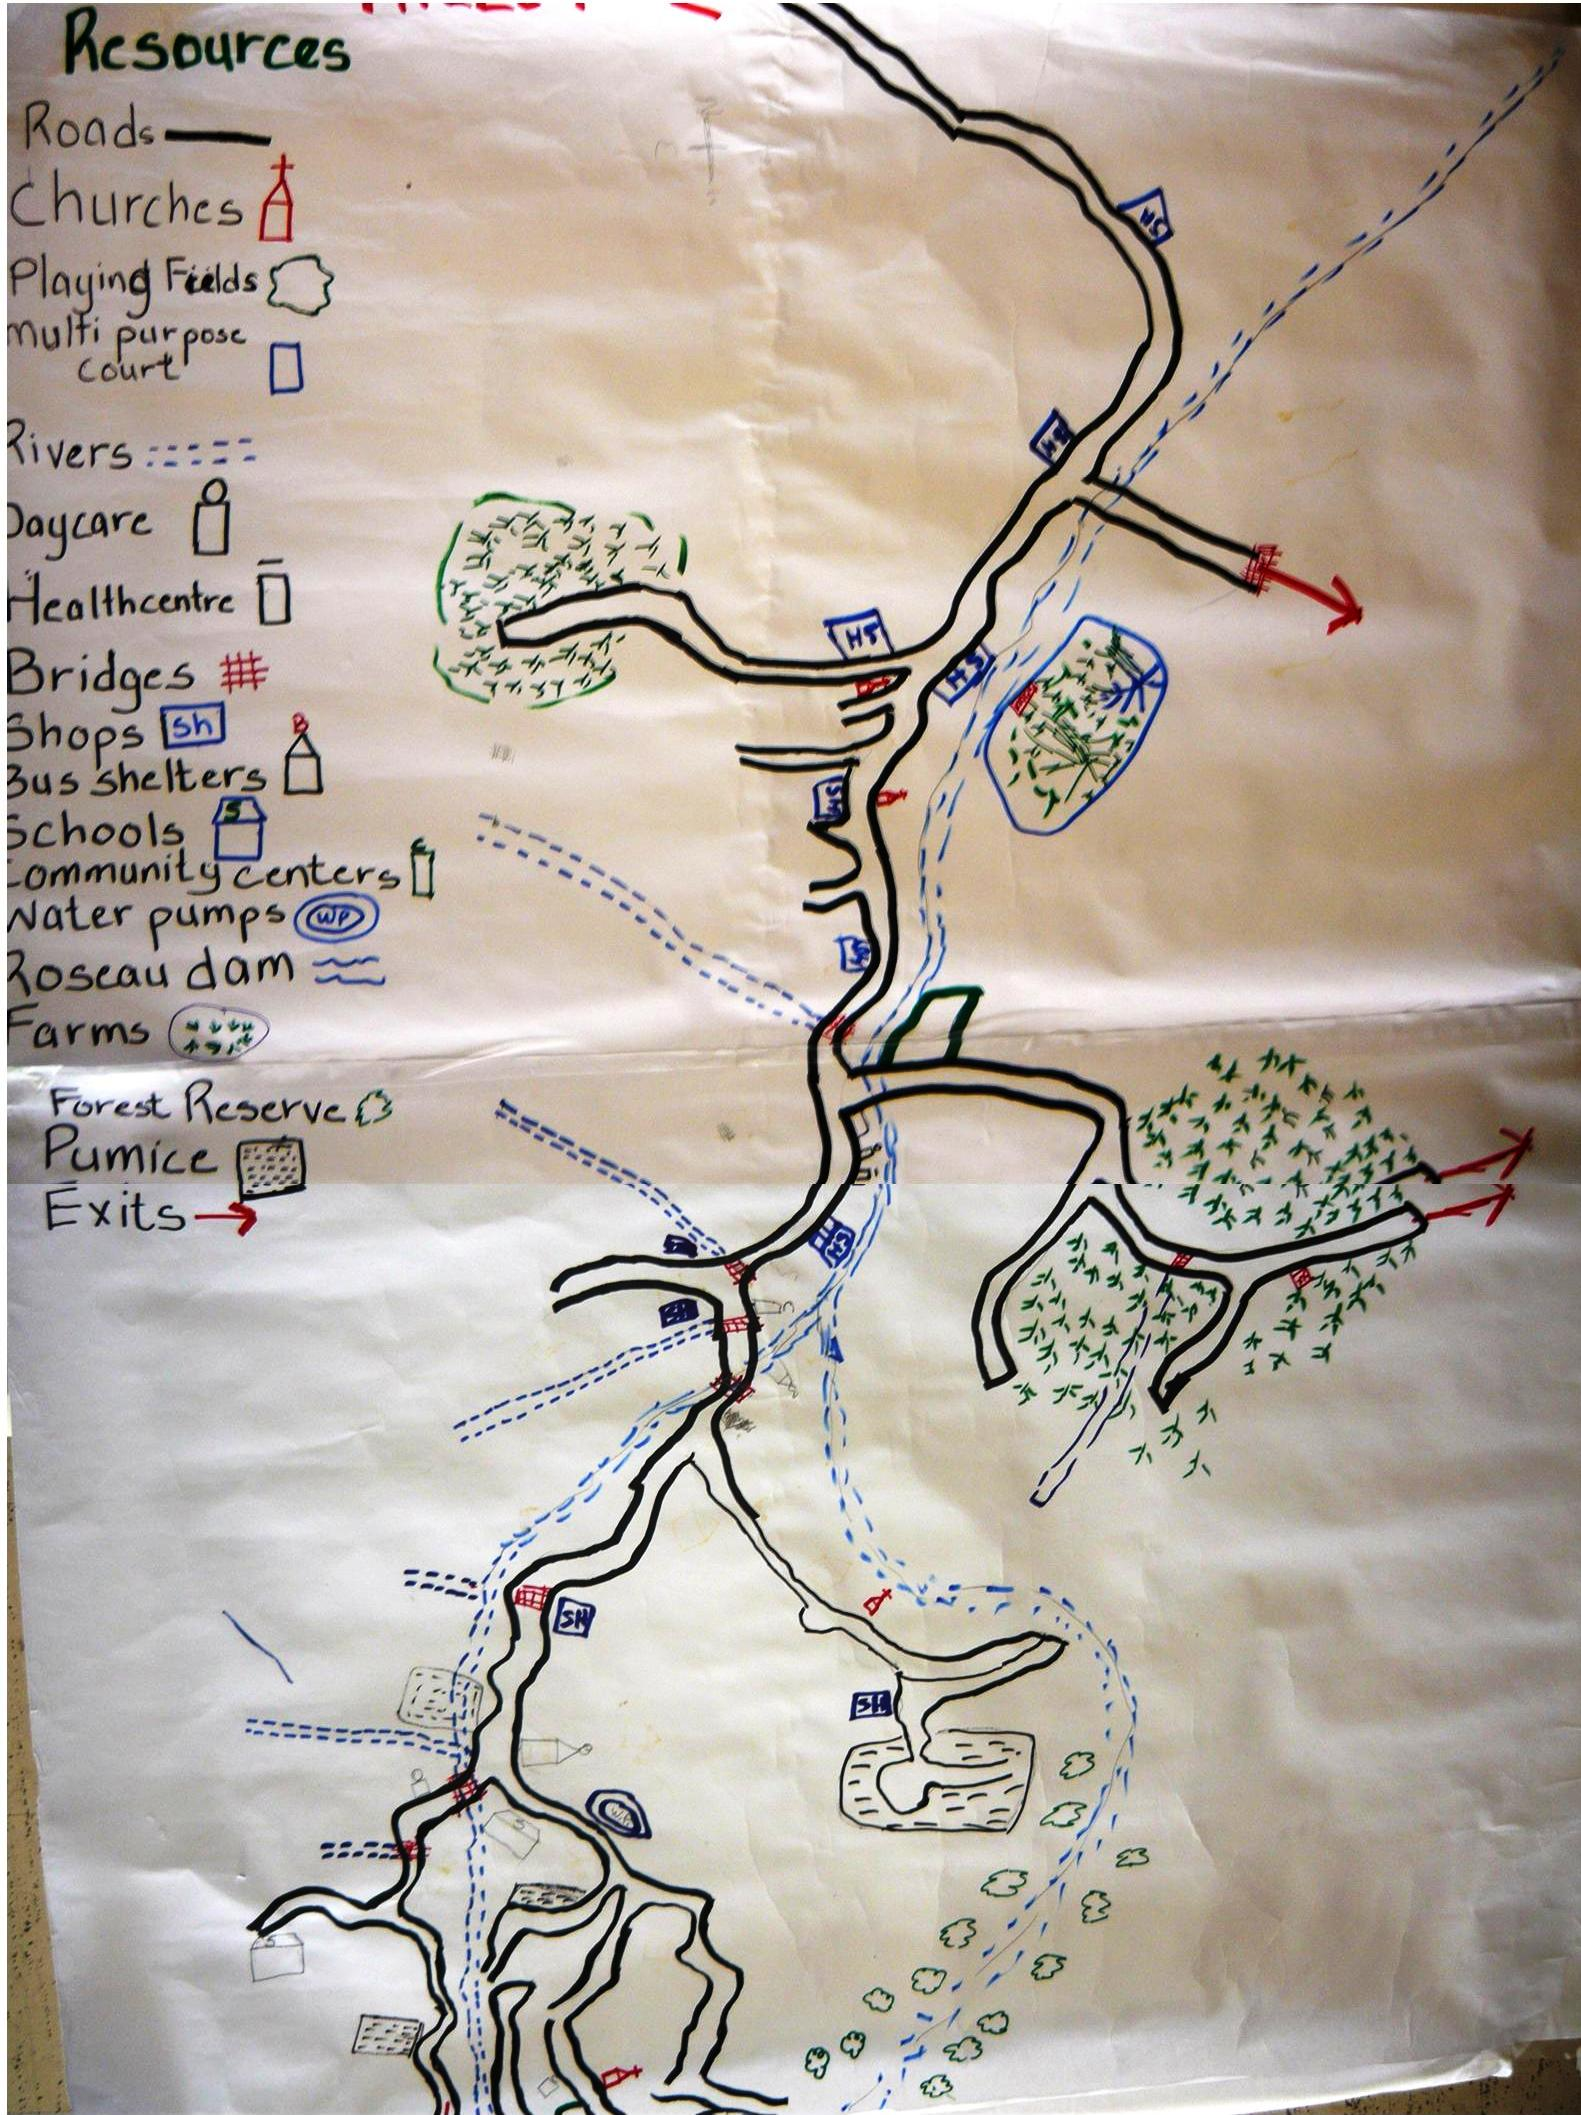 Resources
Roads
Churches
Playing Fields
Multi purpose
court
Rivers
Daycare
Healthcentre
Bridges
Shops Sh
B
Bus shelters
Schools S
Community centers C
Water pumps WP
Roseau dam
Farms
Forest Reserve
Pumice
Exits
SH
HS
HS
HS
HS
SH
SH
SH
SH
WP
S
S